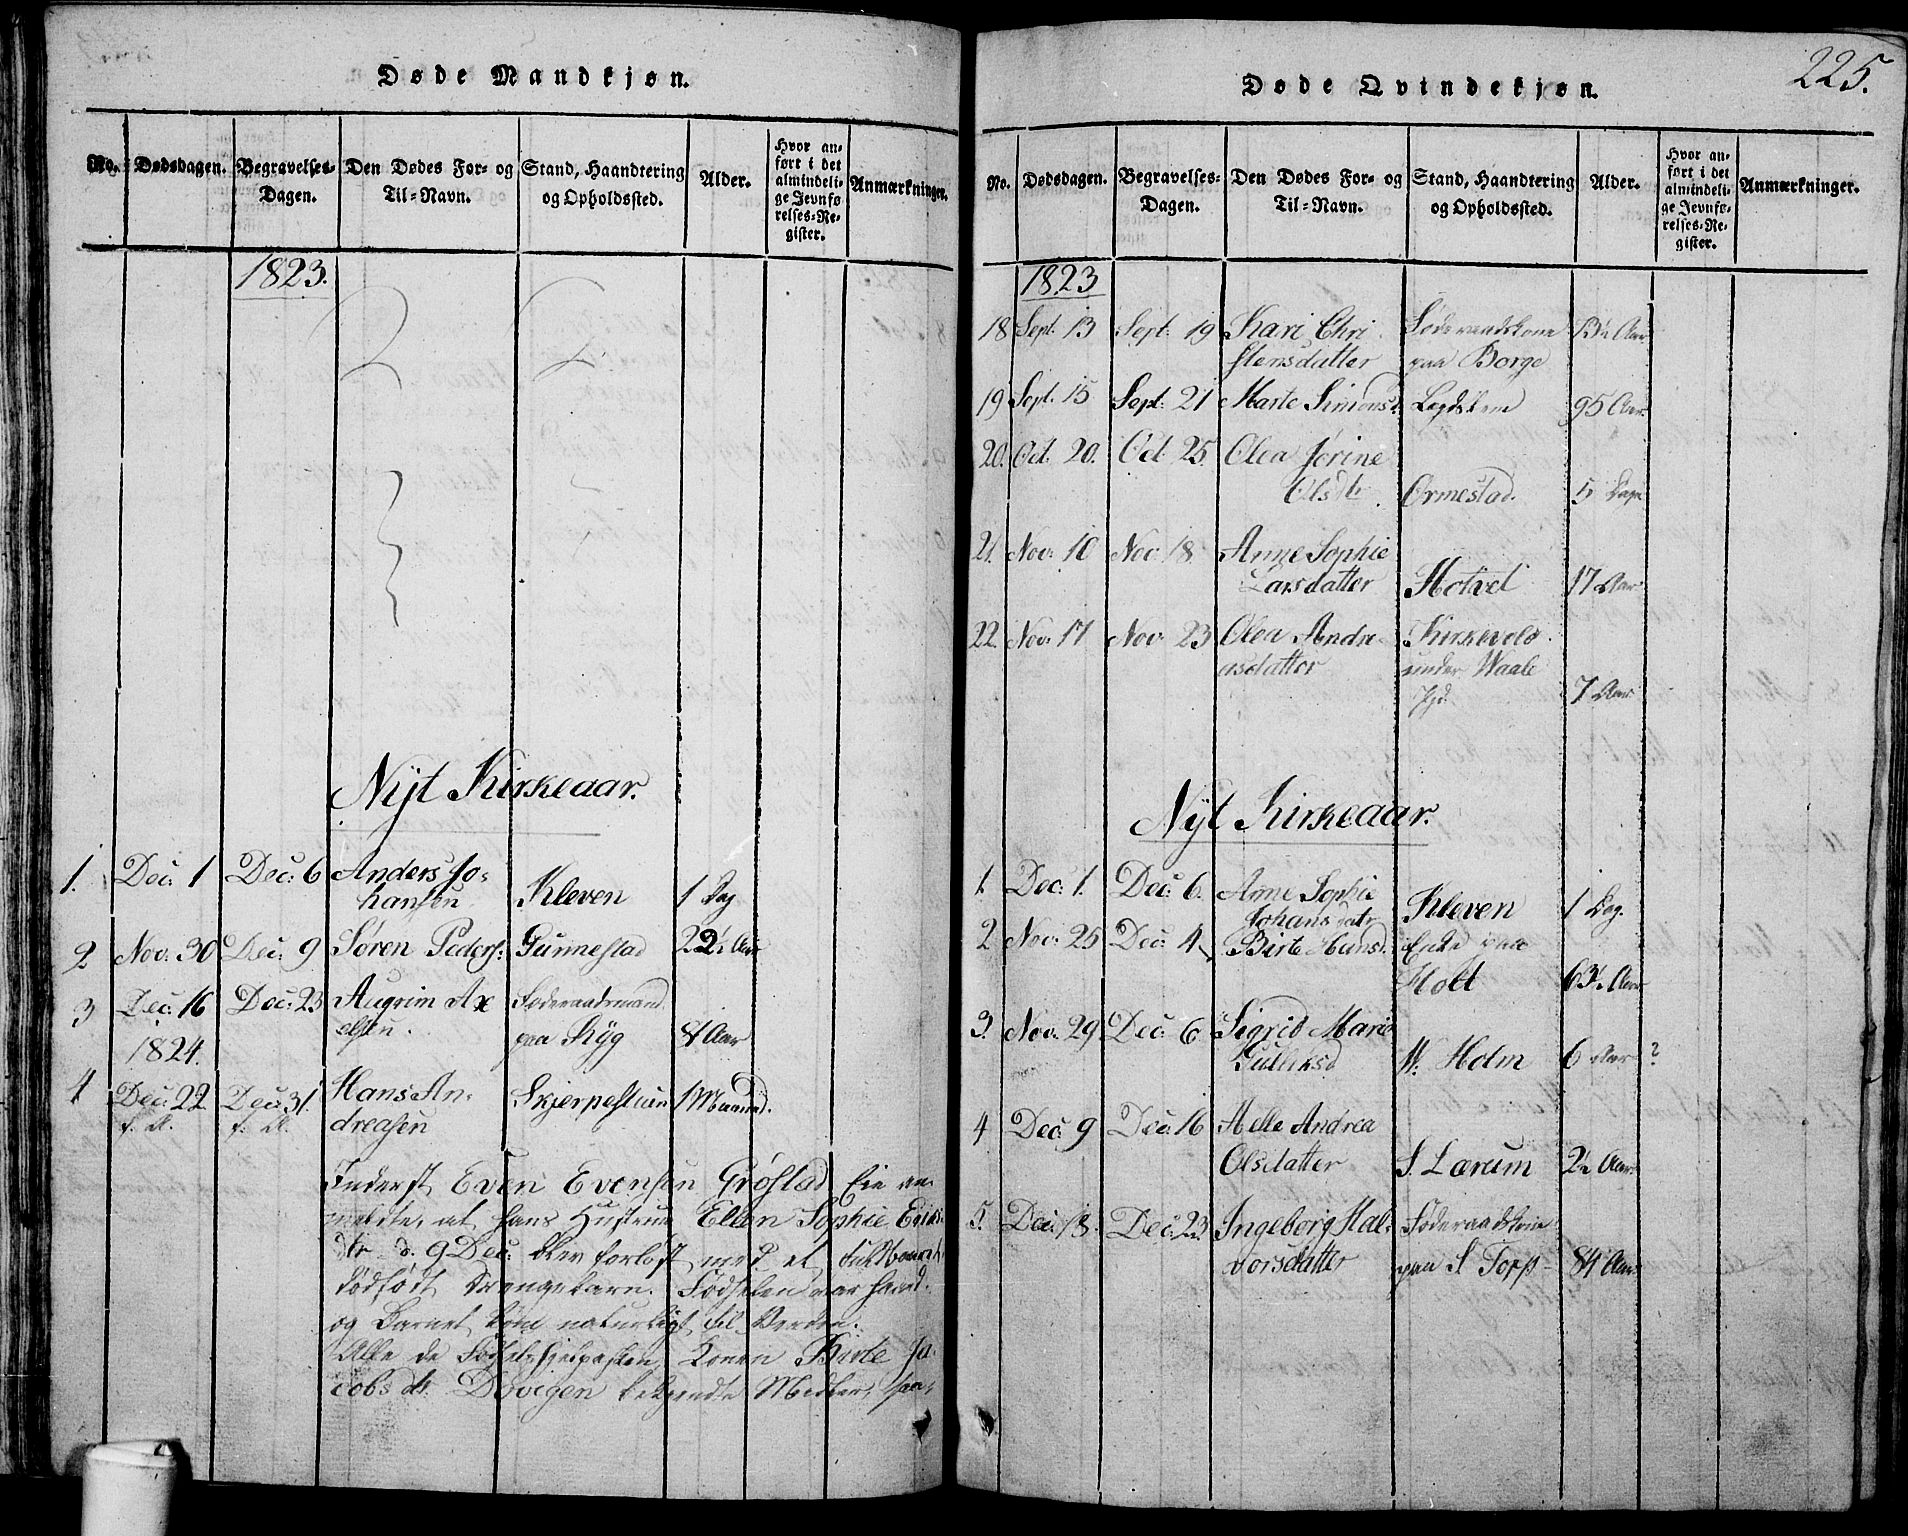 Døde Mandkjøn.
No. Dødsdagen. Begravelses-Dagen. Den Dødes For- og Til-Navn. Stand, Haandtering og Opholdssted. Alder. Hvor anført i det almindelige Jevnførelses-Register. Anmærkninger.
1823.
Nyt Kirkeaar.
1. Dec: 1 Dec: 6 Anders Jo-
hansen Kleven 1 Dag
2 Nov: 30 Dec: 9 Søren Peders: Gunnestad 22½ Aar
3 Dec: 16 Dec: 23 Augrim Ax
elsen. Føderaadsmand
paa Ryg Aar
1824.
4 Dec: 22 Dec: 31. Hans An-
f. A. f. A. dreasen 1 Maaned.
Inderst Even Evensen Grøstad
at hans Hustrue Ellen Sophie
d. 9 Dec: blev forløst med et
dødfødt Drengebarn. Fødselen var haard.
og Barnet kom naturligt til Verden.
Alle de Konen Birte Ja-
cobs dr. Døvigen Midler, saa
Døde Qvindekjøn.
225.
No. Dødsdagen. Begravelses-Dagen. Den Dødes For- og Til-Navn. Stand, Haandtering og Opholdssted. Alder. Hvor anført i det almindelige Jevnførelses-Register. Anmærkninger.
1823
18 Sept. 13 Sept: 19 Kari Chri-
stensdatter Føderaadskone
paa Borge Aar
19 Sept. 15 Sept: 21 Marte Simons Legdslem 95 Aar
20. Oct: 20. Oct: 25. Olea Jørine
Olsdtr. Ormestad. 5 Dage
21. Nov: 10 Nov: 18. Anne Sophie
Larsdatter Hotvet 17 Aar
22. Nov: 17 Nov: 23 Olea Andre-
asdatter Kirkevold
under Waale
Pgd. 7 Aar
Nyt Kirkeaar.
1. Dec: 1. Dec: 6. Anne Sophie
Johansdatr Kleven 1 Dag.
2 Nov: 25 Dec: 4 Birte Hans Enke paa
Holt 63½ Aar
3. Nov: 29 Dec: 6 Sigrid Marie
Gulliksd W. Holm 6 Aar ?
4 Dec: 9 Dec: 16 Helle Andrea
Olsdatter S. Lærum 2½ Aar
5. Dec: 18. Dec: 23 Ingeborg Hal-
vorsdatter Føderaadskone
paa S Torp 84 Aar